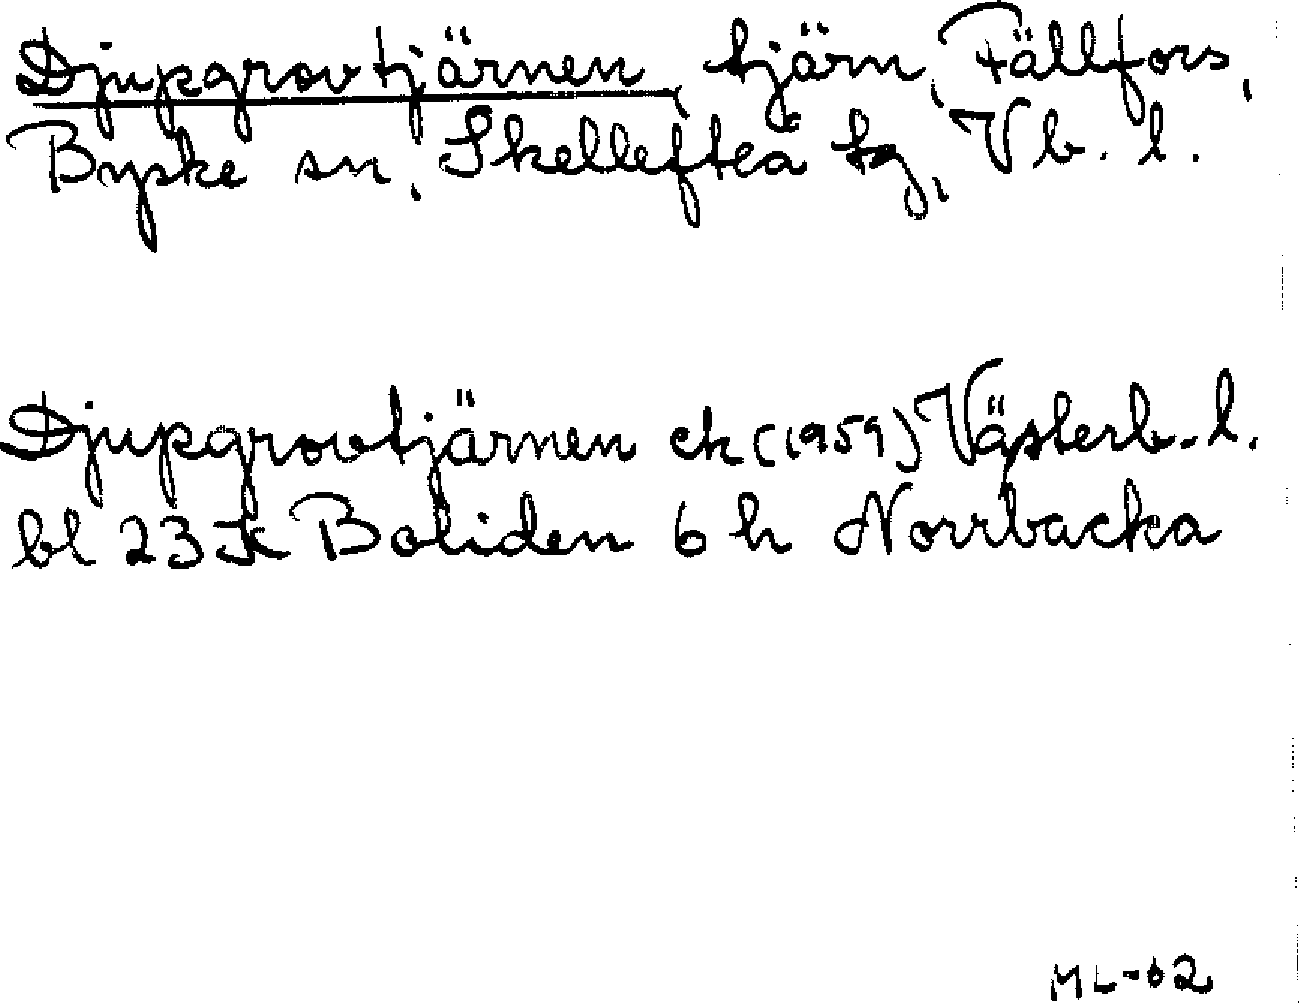 Djupgrovtjärnen, tjärn, Fällfors,
Byske sn, Skellefteå tg, Vb. l.
Djupgrovtjärnen ek (1959) Västerb. l.
bl 23 K Boliden 6 h Norrbacka
ML-02